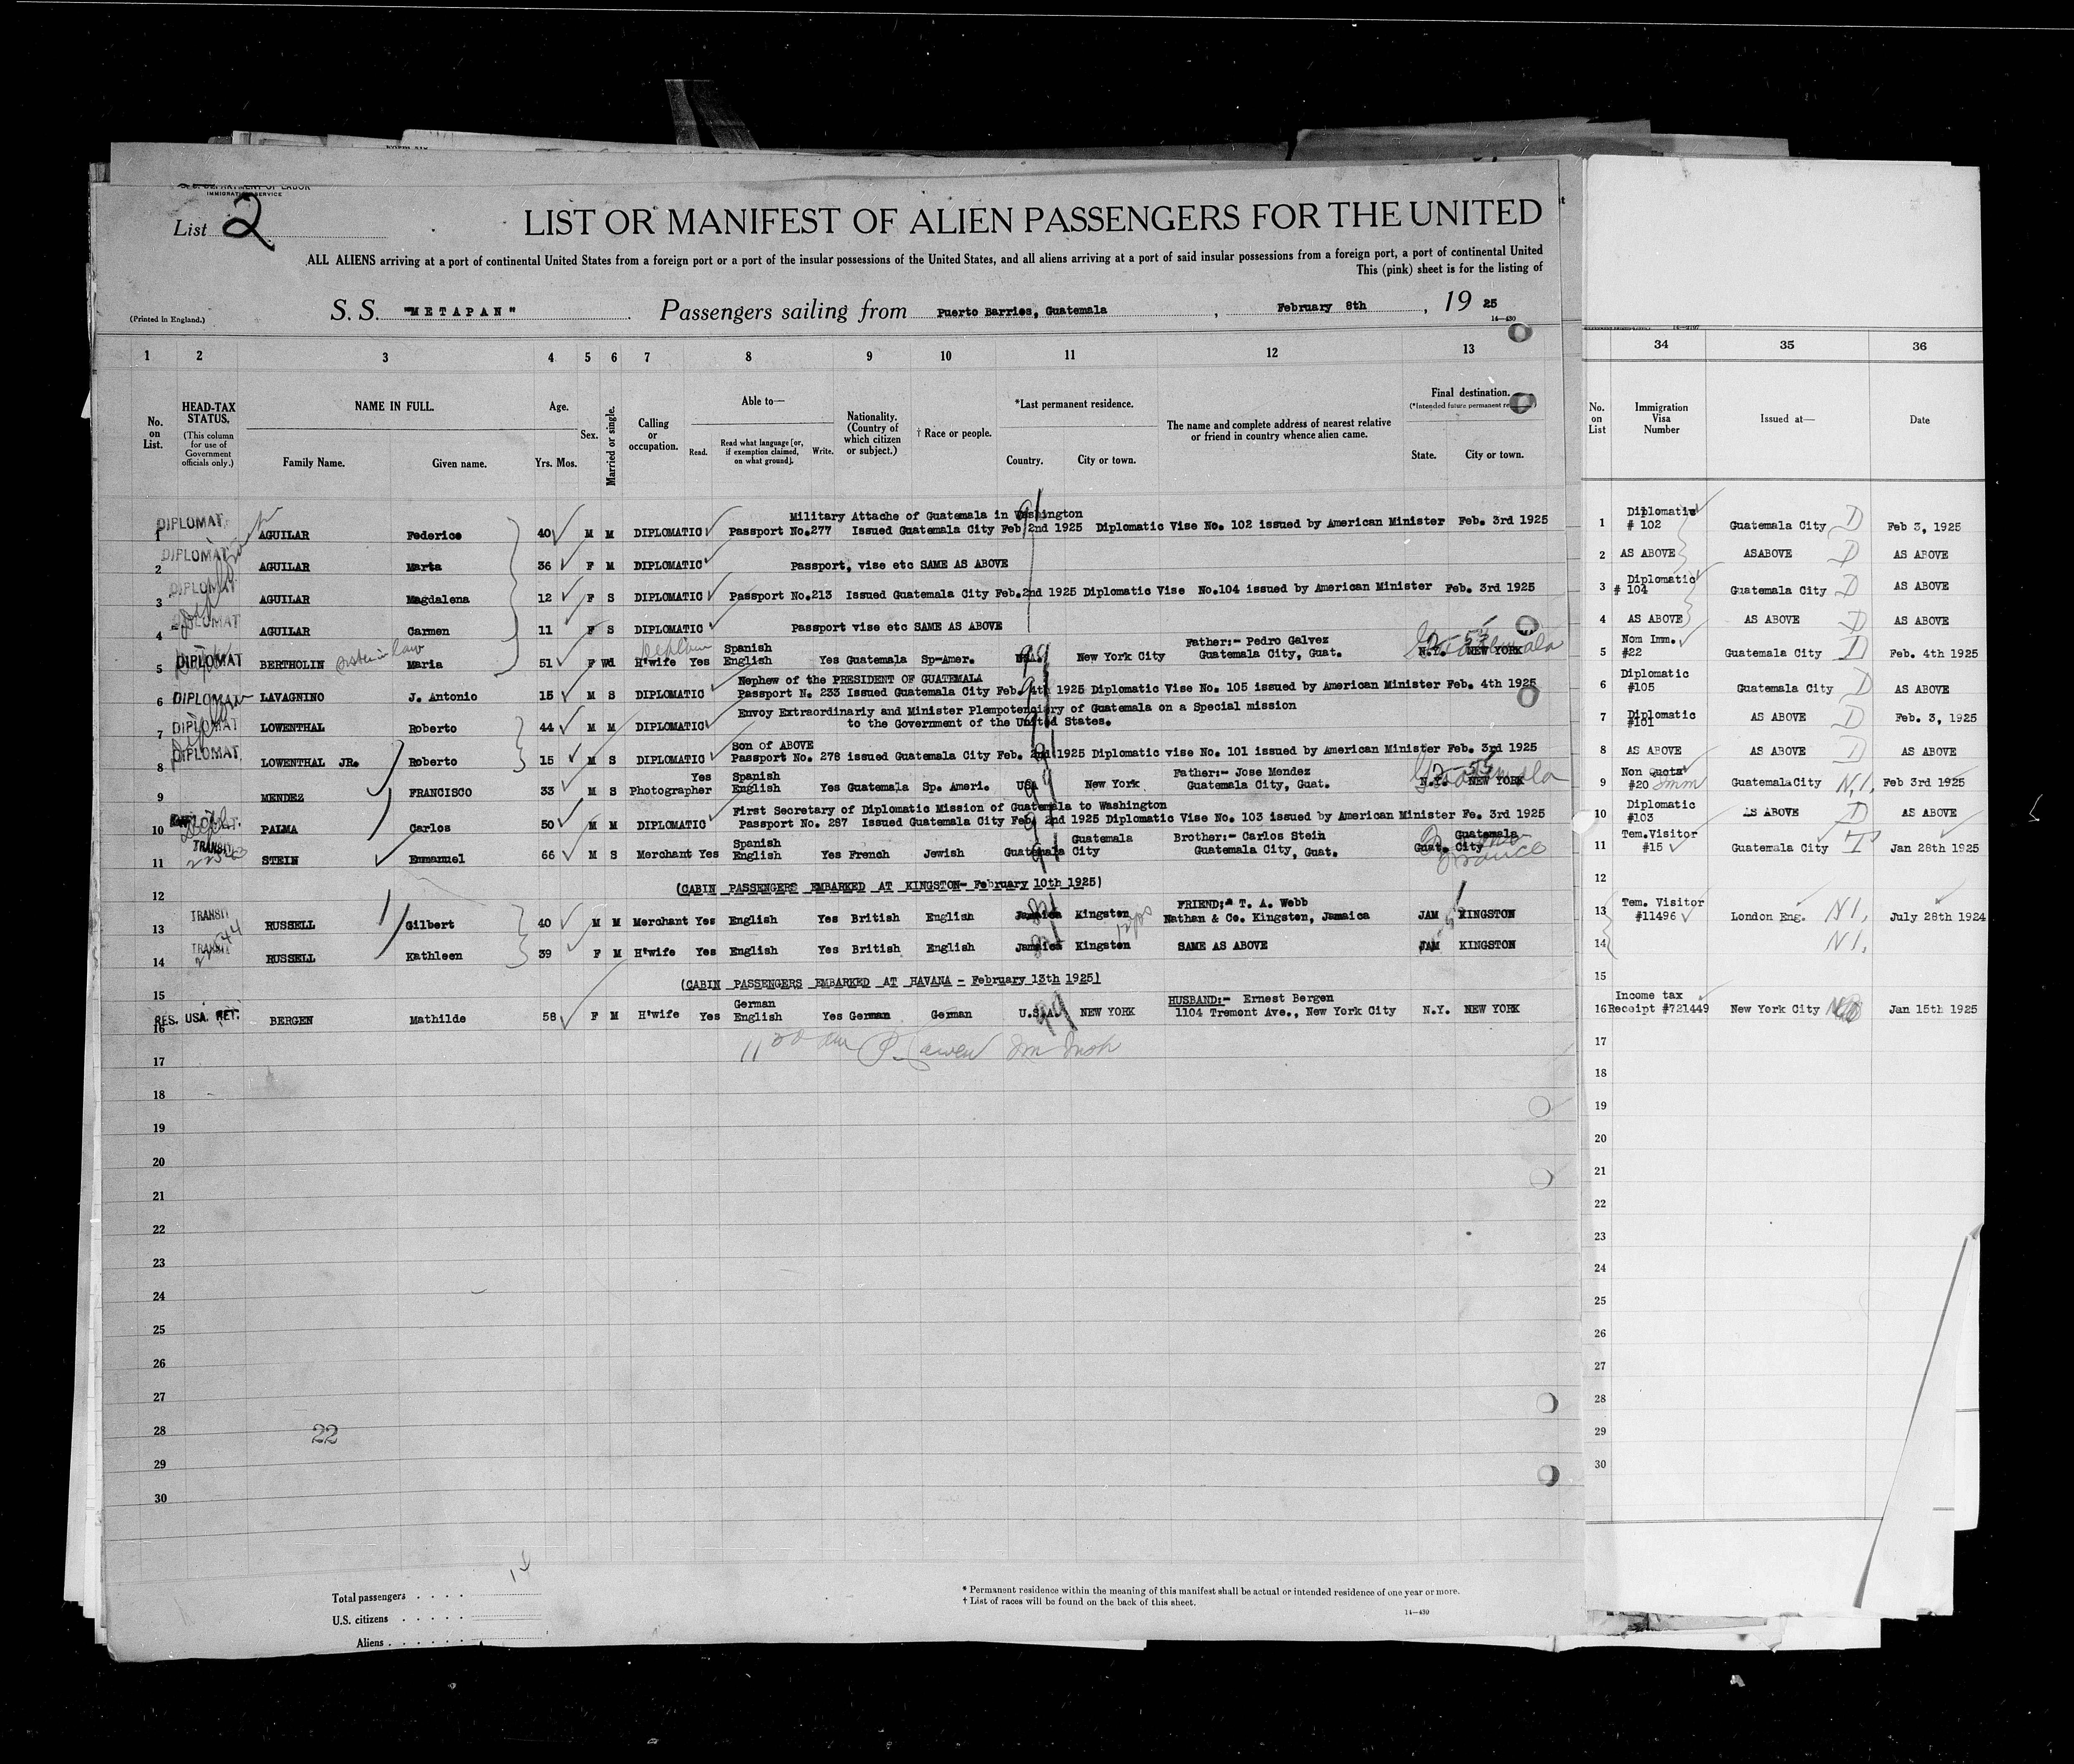 U. S. DEPARTMENT OF LABOR
IMMIGRATION SERVICE
List 2
LIST OR MANIFEST OF ALIEN PASSENGERS FOR THE UNITED
ALL ALIENS arriving at a port of continental United States from a foreign port or a port of the insular possessions of the United States, and all aliens arriving at a port of said insular possessions from a foreign port, a port of continental United
This (pink) sheet is for the listing of
(Printed in England.) S. S. "METAPAN" Passengers sailing from Puerto Barrios, Guatemala, February 8th, 19 25
14—430
1 2 3 4 5 6 7 8 9 10 11 12 13 34 35 36
No. on List.
HEAD-TAX STATUS.
(This column for use of Government officials only.)
NAME IN FULL.
Family Name. Given name.
Age.
Yrs. Mos.
Sex.
Married or single.
Calling or occupation.
Able to—
Read. Read what language [or, if exemption claimed, on what ground]. Write.
Nationality. (Country of which citizen or subject.)
† Race or people.
*Last permanent residence.
Country. City or town.
The name and complete address of nearest relative or friend in country whence alien came.
Final destination.
State. City or town.
No. on List
Immigration Visa Number
Issued at—
Date
Military Attache of Guatemala in Washington
1 DIPLOMAT AGUILAR Federico 40 M M DIPLOMATIC Passport No.277 Issued Guatemala City Feb 2nd 1925 Diplomatic Vise No. 102 issued by American Minister Feb. 3rd 1925 1 Diplomatic # 102 Guatemala City D Feb 3, 1925
2 DIPLOMAT AGUILAR Marta 36 F M DIPLOMATIC Passport, vise etc SAME AS ABOVE 2 AS ABOVE ASABOVE D AS ABOVE
3 DIPLOMAT AGUILAR Magdalena 12 F S DIPLOMATIC Passport No.213 Issued Guatemala City Feb.2nd 1925 Diplomatic Vise No.104 issued by American Minister Feb. 3rd 1925 3 Diplomatic # 104 Guatemala City D AS ABOVE
4 DIPLOMAT AGUILAR Carmen 11 F S DIPLOMATIC Passport vise etc SAME AS ABOVE 4 AS ABOVE AS ABOVE D AS ABOVE
5 DIPLOMAT BERTHOLIN Sister in law Maria 51 F Wd H'wife Yes Spanish English Yes Guatemala Sp-Amer. USA. New York City Father:- Pedro Galvez Guatemala City, Guat. N.Y. NEW YORK Guatemala 5 Nom Imm. #22 Guatemala City D Feb. 4th 1925
Nephew of the PRESIDENT OF GUATEMALA
6 DIPLOMAT LAVAGNINO J. Antonio 15 M S DIPLOMATIC Passport N. 233 Issued Guatemala City Feb. 4th 1925 Diplomatic Vise No. 105 issued by American Minister Feb. 4th 1925 6 Diplomatic #105 Guatemala City D AS ABOVE
Envoy Extraordinariy and Minister Plempotenciary of Guatemala on a Special mission
7 DIPLOMAT LOWENTHAL Roberto 44 M M DIPLOMATIC to the Government of the United States. 7 Diplomatic #101 AS ABOVE D Feb. 3, 1925
Son of ABOVE
8 DIPLOMAT. LOWENTHAL JR. Roberto 15 M S DIPLOMATIC Passport No. 278 issued Guatemala City Feb. 2nd 1925 Diplomatic vise No. 101 issued by American Minister Feb. 3rd 1925 8 AS ABOVE AS ABOVE D AS ABOVE
9 MENDEZ FRANCISCO 33 M S Photographer Yes Spanish English Yes Guatemala Sp. Ameri. USA New York Father:- Jose Mendez Guatemala City, Guat. N.Y. NEW YORK Guatemala 9 Non Quota #20 Imm GuatemalaCity N.I. Feb 3rd 1925
First Secretary of Diplomatic Mission of Guatemala to Washington
10 PALMA Carlos 50 M M DIPLOMATIC Passport No. 287 Issued Guatemala City Feb. 2nd 1925 Diplomatic Vise No. 103 issued by American Minister Fe. 3rd 1925 10 Diplomatic #103 AS ABOVE D AS ABOVE
11 TRANSIT STEIN Emmanuel 66 M S Merchant Yes Spanish English Yes French Jewish Guatemala Guatemala City Brother:- Carlos Stein Guatemala City, Guat. Guat. Guatemala City France 11 Tem.Visitor #15 Guatemala City T Jan 28th 1925
12 (CABIN PASSENGERS EMBARKED AT KINGSTON- February 10th 1925) 12
13 TRANSIT RUSSELL Gilbert 40 M M Merchant Yes English Yes British English Jamaica Kingston FRIEND;- T. A. Webb Nathan & Co. Kingston, Jamaica JAM KINGSTON 13 Tem. Visitor #11496 London Eng. N I, July 28th 1924
14 TRANSIT RUSSELL Kathleen 39 F M H'wife Yes English Yes British English Jamaica Kingston SAME AS ABOVE JAM KINGSTON 14 N I,
15 (CABIN PASSENGERS EMBARKED AT HAVANA - February 13th 1925) 15
16 RES. USA. RET. BERGEN Mathilde 58 F M H'wife Yes German English Yes German German U.S.A. NEW YORK HUSBAND:- Ernest Bergen 1104 Tremont Ave., New York City N.Y. NEW YORK 16 Income tax Receipt #721449 New York City Jan 15th 1925
17 17
18 18
19 19
20 20
21 21
22 22
23 23
24 24
25 25
26 26
27 27
28 22 28
29 29
30 30
Total passengers
U.S. citizens
Aliens
* Permanent residence within the meaning of this manifest shall be actual or intended residence of one year or more.
† List of races will be found on the back of this sheet.
14—430